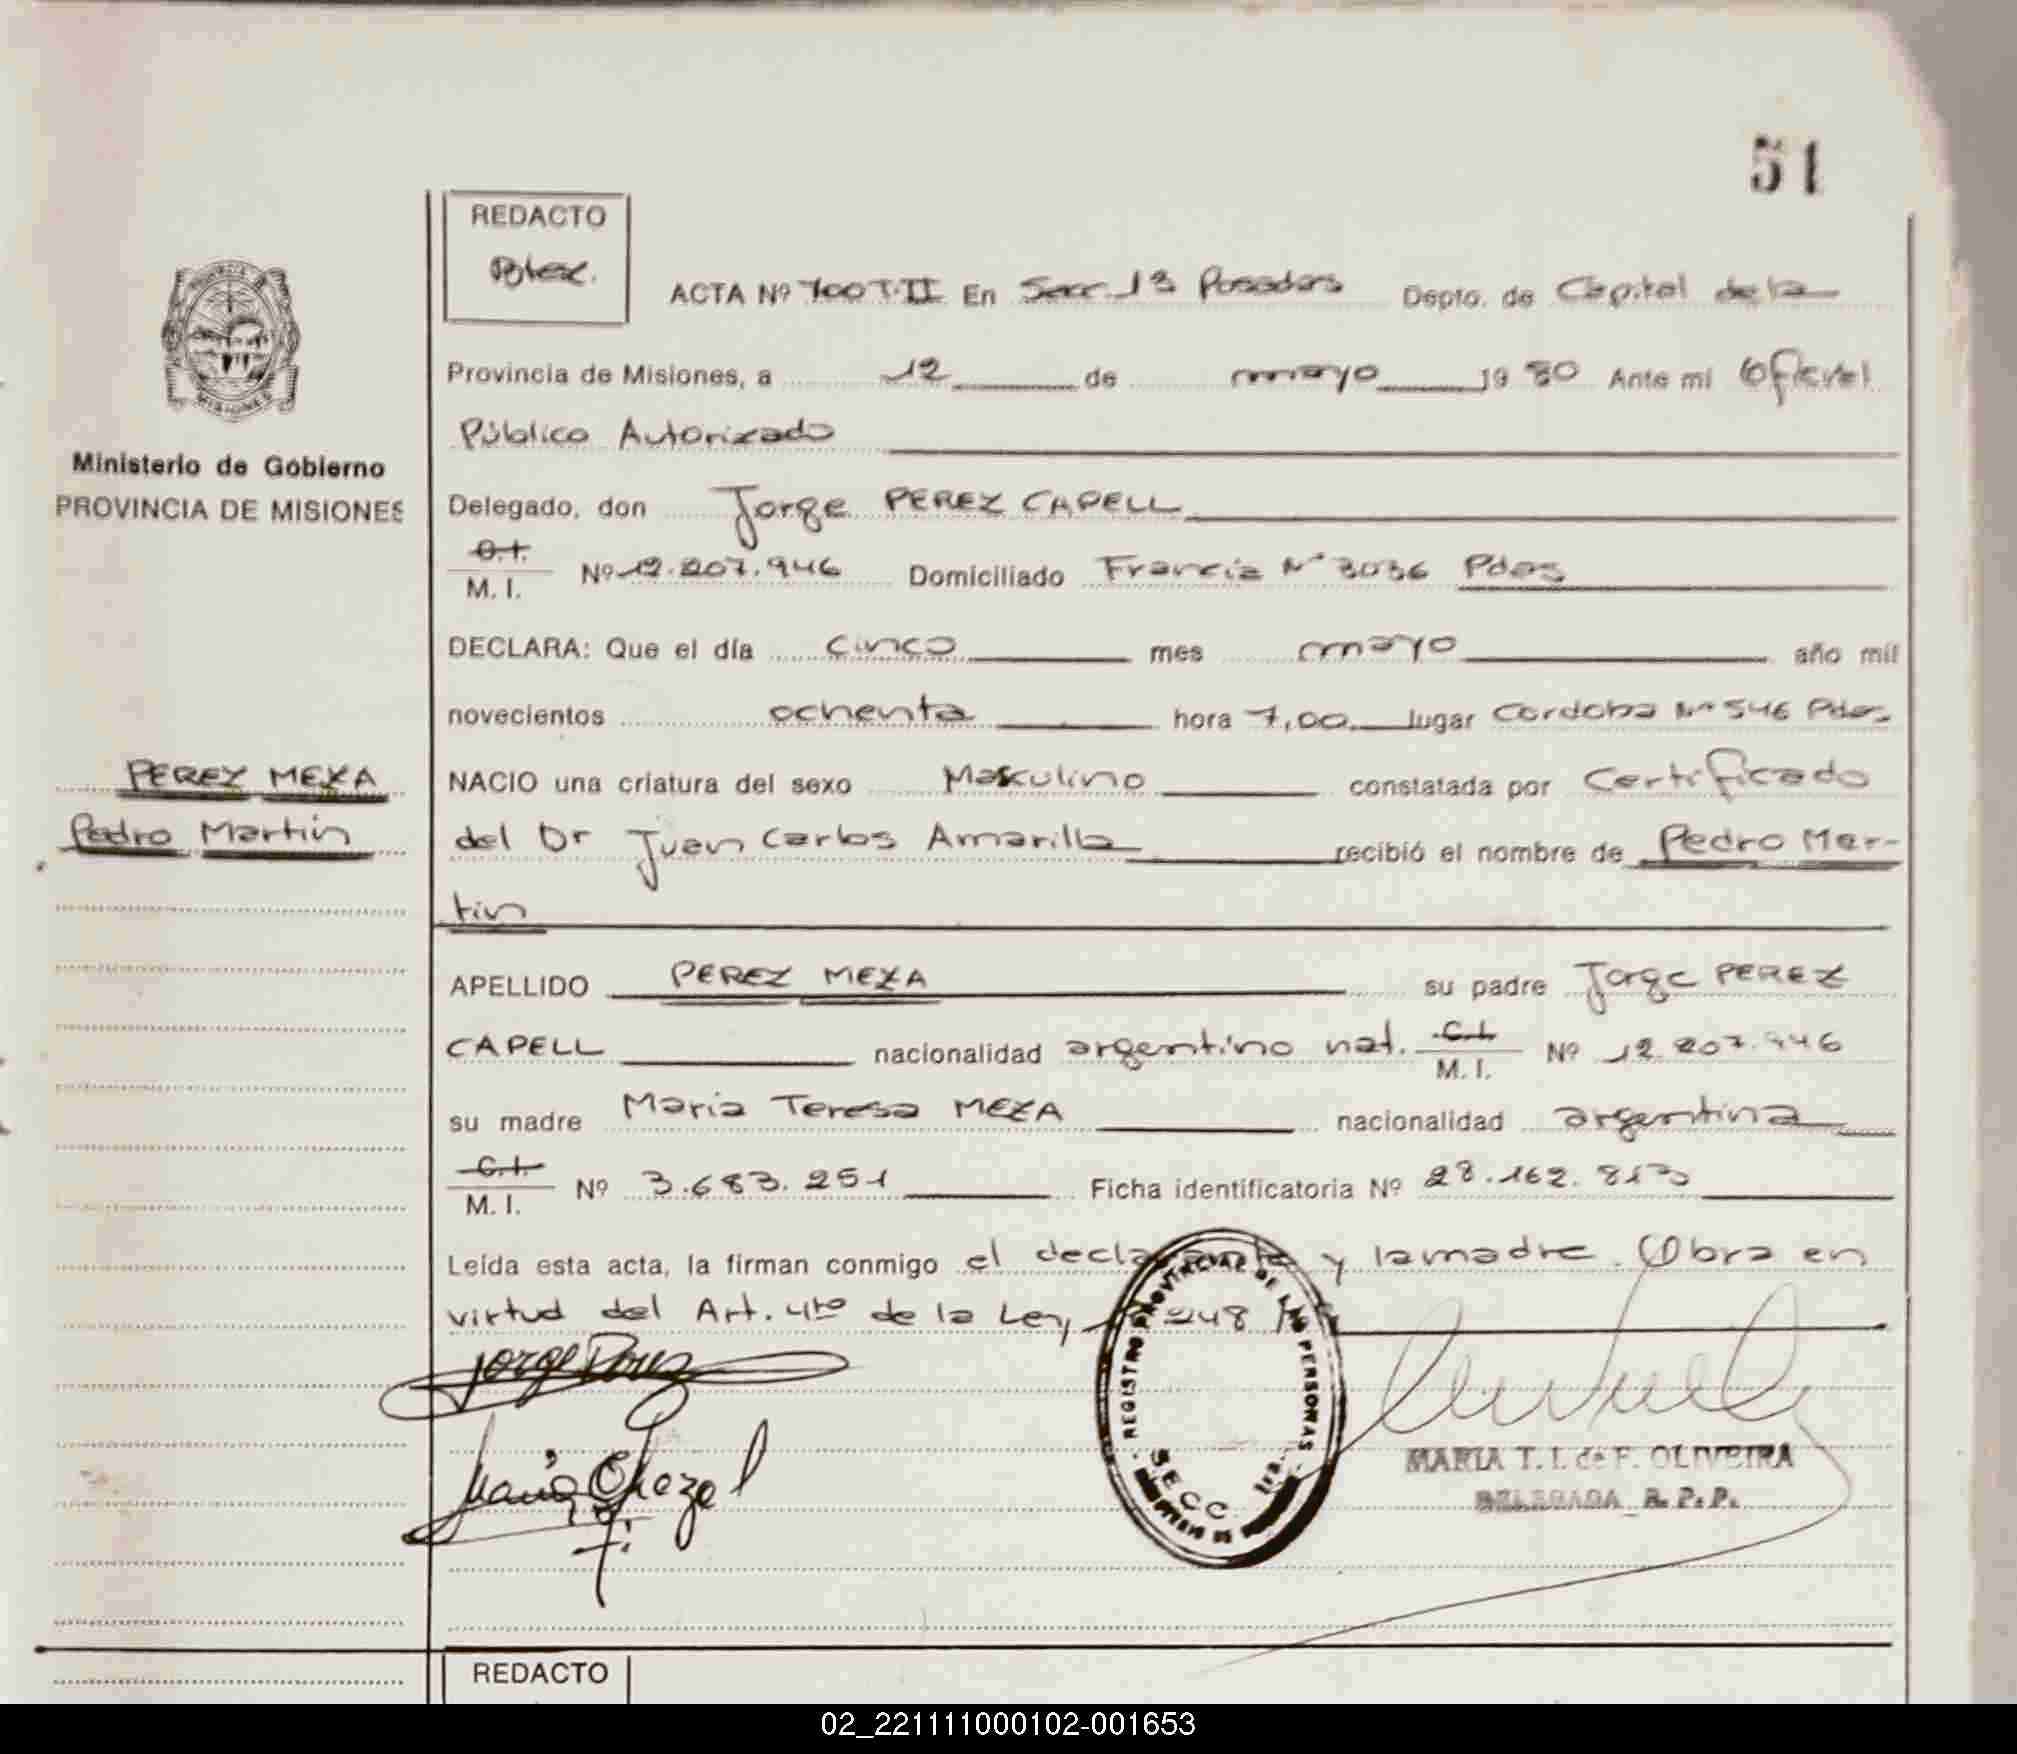 51
REDACTO
ACTA Nº 700 T.II En Secc. 13 Posadas Depto. de Capital de la
Provincia de Misiones, a 12 de mayo 1980 Ante mi Oficial
Público Autorizado
Ministerio de Gobierno
PROVINCIA DE MISIONES
Delegado, don Jorge PEREZ CAPELL
C.I.
M. I. Nº 12.207.946 Domiciliado Francia Nº 3036 Pdas
DECLARA: Que el día cinco mes mayo año mil
novecientos ochenta hora 7,00 lugar Cordoba Nº 546 Pdas.
PEREZ MEZA
Pedro Martín
NACIO una criatura del sexo Masculino constatada por Certificado
del Dr Juan Carlos Amarilla recibió el nombre de Pedro Mar-
tin
APELLIDO PEREZ MEZA su padre Jorge PEREZ
CAPELL nacionalidad argentino nat. C.I.
M. I. Nº 12.207.946
su madre Maria Teresa MEZA nacionalidad argentina
C.I.
M. I. Nº 3.683.251 Ficha identificatoria Nº 28.162.813
Leída esta acta, la firman conmigo el declarante y la madre. Obra en
virtud del Art. 4to de la Ley 248
REGISTRO PROVINCIAL DE LAS PERSONAS
SECC.
MARIA T. I. de F. OLIVEIRA
DELEGADA R. P. P.
REDACTO
02_221111000102-001653